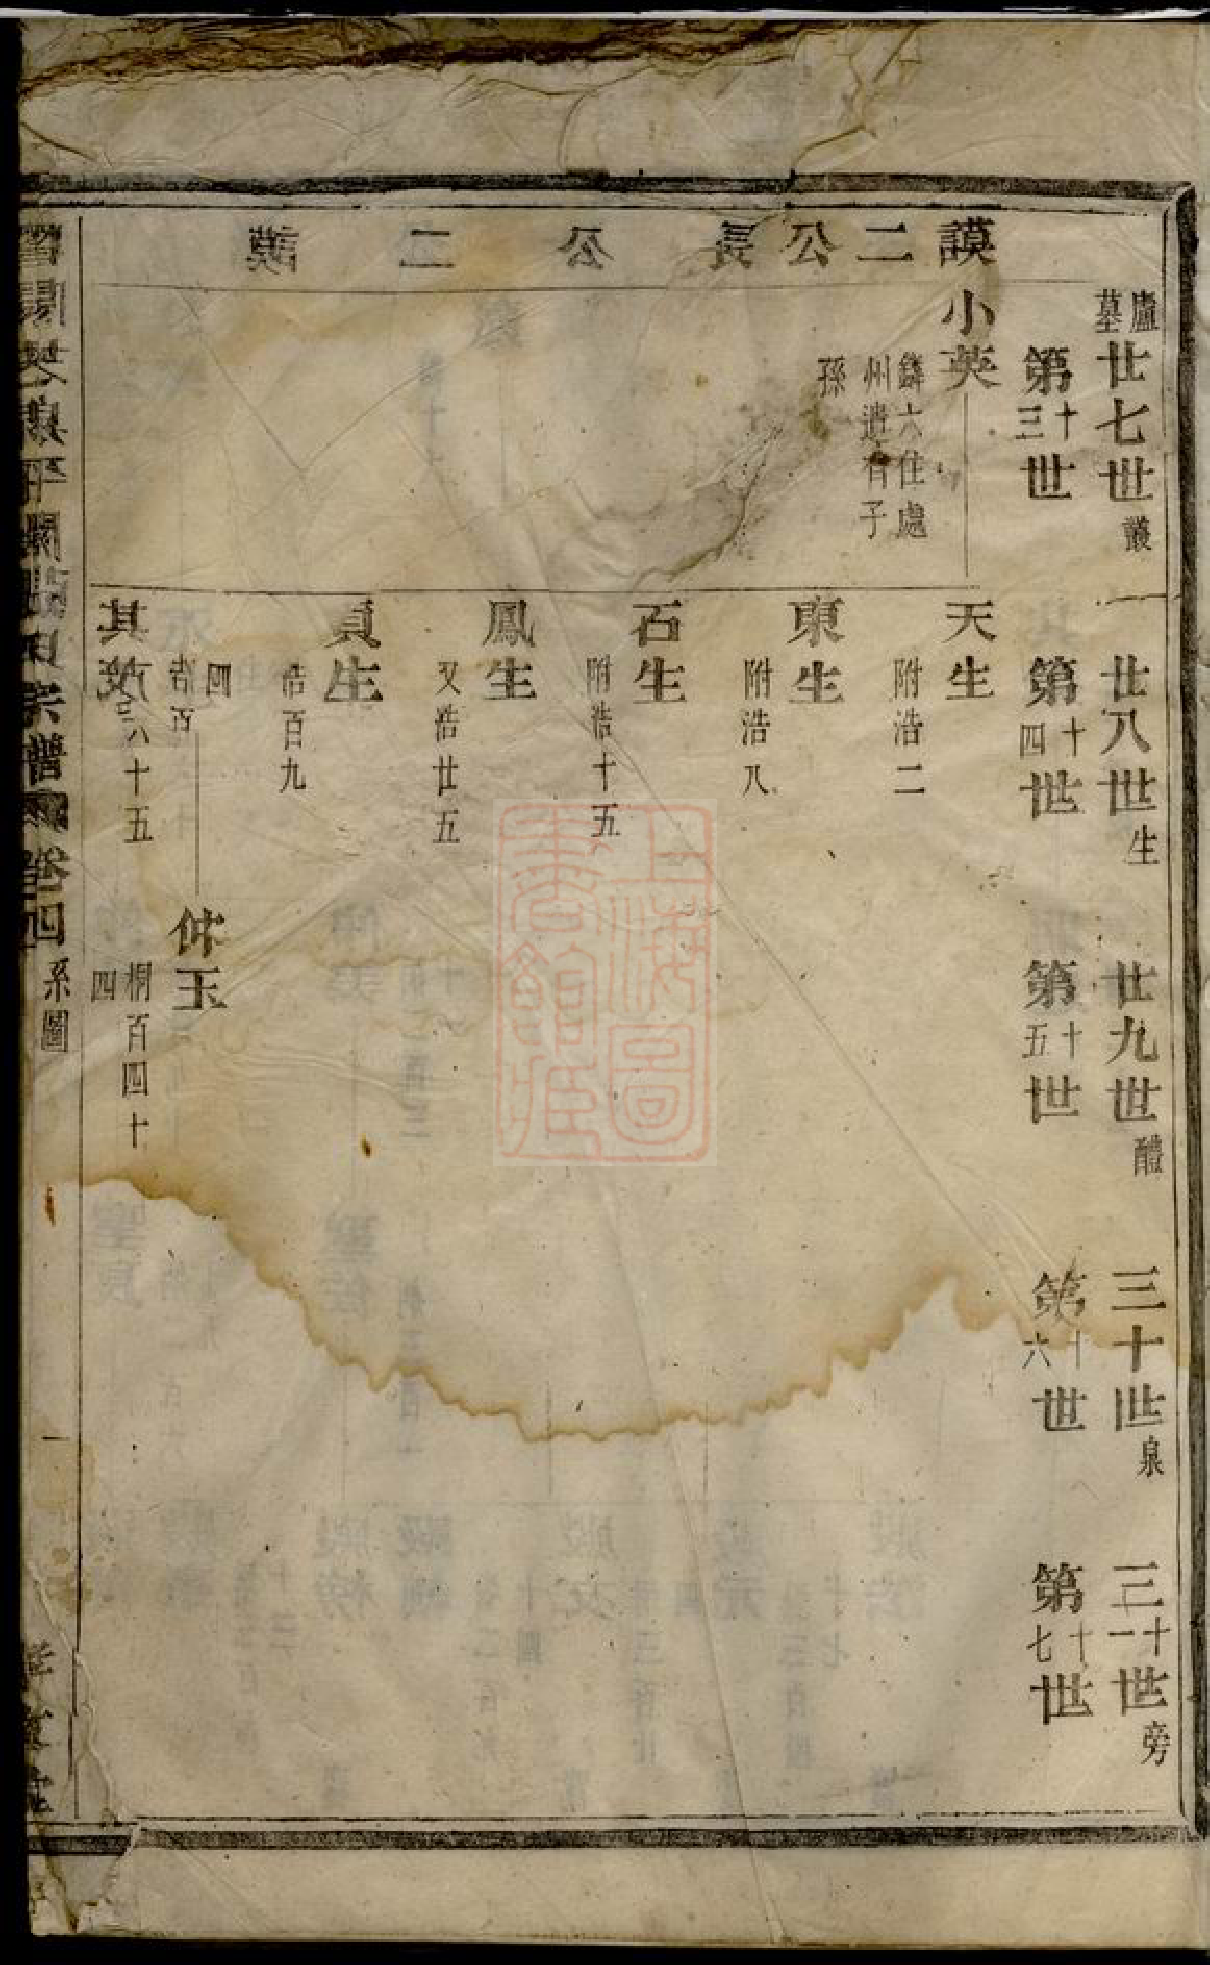 廬墓廿七世叢
廿八世生
廿九世醴
三十世泉
三十一世旁
第十三世
第十四世
第十五世
第十六世
第十七世
謨二公長公二謨
小英
鱗六住處
州遺有子
孫
天生
附浩二
東生
附浩八
石生
附浩十五
鳳生
又浩廿五
貞生
浩百九
四
浩百
仲玉
桐百四十
四
其
六十五
宗譜
卷四
系圖
一
上海圖書館藏